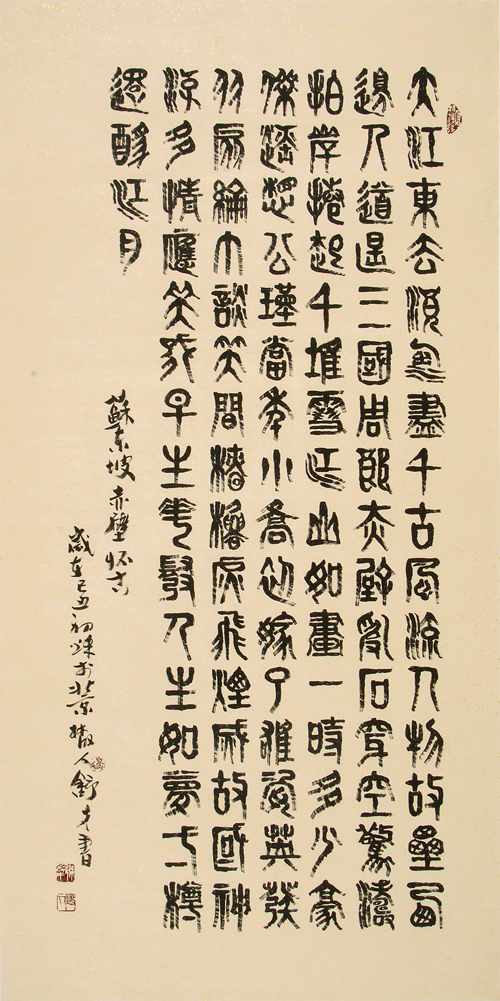 大江東去浪淘盡千古風流人物故壘西
邊人道是三國周郎赤壁亂石穿空驚濤
拍岸捲起千堆雪江山如畫一時多少豪
傑遙想公瑾當年小喬初嫁了雄姿英發
羽扇綸巾談笑間檣櫓灰飛煙滅故國神
游多情應笑我早生華髮人生如夢一樽
還酹江月
蘇東坡赤壁怀古
歲在己丑初於北京人舒才書